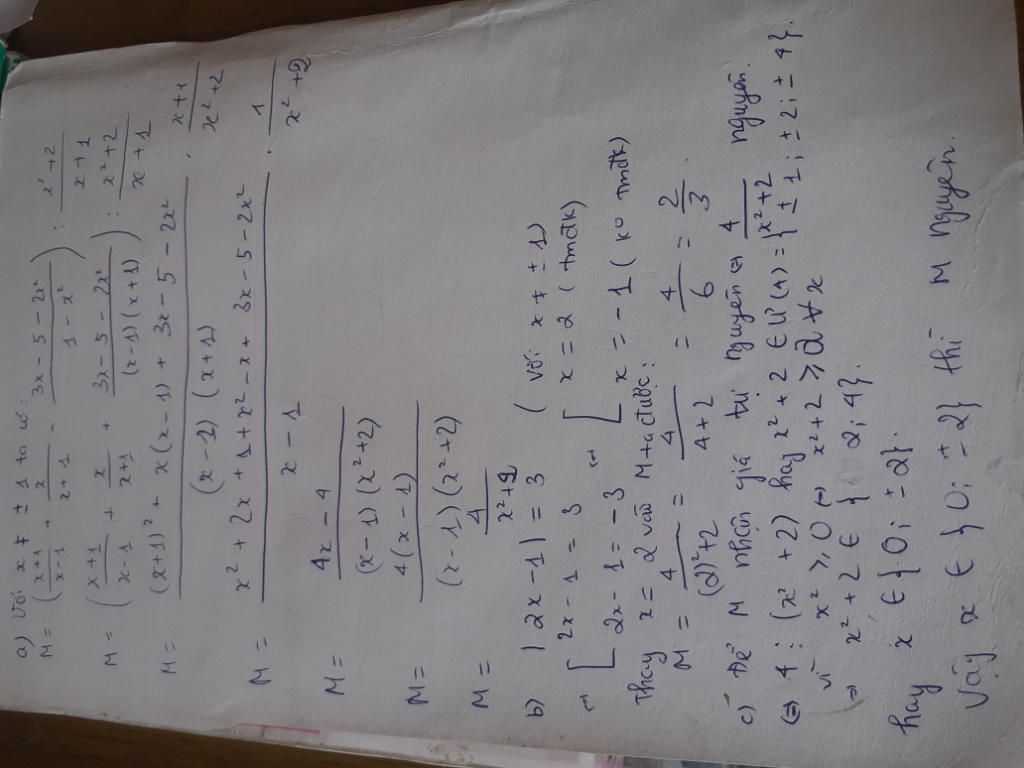 a) Với x ≠ ± 1 ta có:
M = ( x+1/x-1 + x/x+1 - 3x-5-2x²/1-x² ) : x²+2/x+1
M = ( x+1/x-1 + x/x+1 + 3x-5-2x²/(x-1)(x+1) ) : x²+2/x+1
M = (x+1)² + x(x-1) + 3x-5-2x²/(x-1)(x+1) . x+1/x²+2
M = x²+2x+1+x²-x+3x-5-2x²/x-1 . 1/x²+2
M = 4x-4/(x-1)(x²+2)
M = 4(x-1)/(x-1)(x²+2)
M = 4/x²+2
b) |2x-1| = 3 (với x ≠ ± 1)
⇔ [ 2x-1 = 3 ⇔ [ x = 2 (tmđk)
2x-1 = -3 x = -1 (ko tmđk)
Thay x = 2 vào M ta được:
M = 4/(2)²+2 = 4/4+2 = 4/6 = 2/3
c) Để M nhận giá trị nguyên ⇔ 4/x²+2 nguyên.
⇔ 4 : (x²+2) hay x²+2 ∈ Ư(4) = {± 1; ± 2; ± 4}.
vì x² ≥ 0 ⇔ x²+2 ≥ 2 ∀ x
⇒ x²+2 ∈ {2; 4}.
hay x ∈ {0; ± 2}.
Vậy x ∈ {0; ± 2} thì M nguyên.